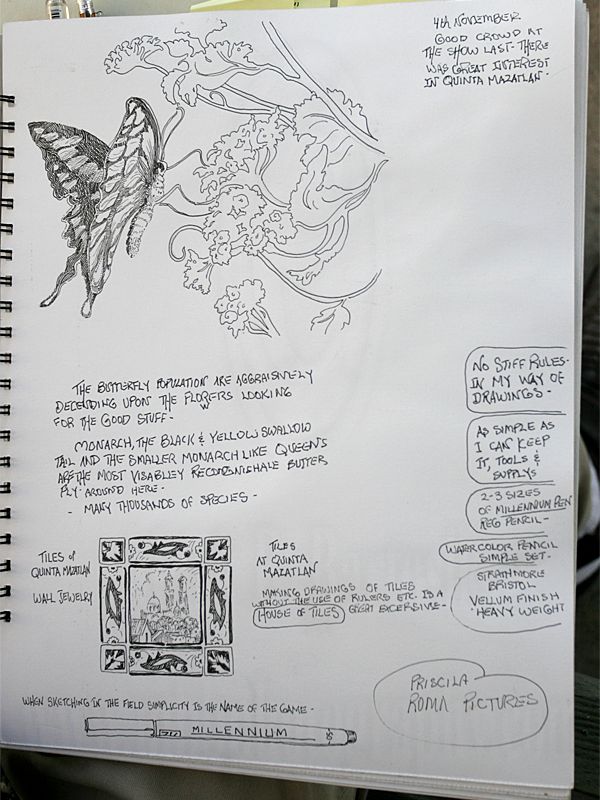 4th NOVEMBER
GOOD CROWD AT
THE SHOW LAST. THERE
WAS GREAT INTEREST
IN QUINTA MAZATLAN.
THE BUTTERFLY POPULATION ARE AGGRAISIVELY
DECENDING UPON THE FLOWERS LOOKING
FOR THE GOOD STUFF-
MONARCH, THE BLACK & YELLOW SWALLOW
TAIL AND THE SMALLER MONARCH LIKE QUEENS
ARE THE MOST VISABLEY RECOGNISHALE BUTTER
FLY AROUND HERE-
- MANY THOUSANDS OF SPECIES-
NO STIFF RULES-
IN MY WAY OF
DRAWINGS-
AS SIMPLE AS
I CAN KEEP
IT, TOOLS &
SUPPLYS
2-3 SIZES
OF MILLENNIUM PEN
REG PENCIL-
WATERCOLOR PENCIL
SIMPLE SET-
STRATHMORE
BRISTOL
VELLUM FINISH
HEAVY WEIGHT
TILES OF
QUINTA MAZATLAN
WALL JEWELRY
TILES
AT QUINTA
MAZATLAN
MAKING DRAWINGS OF TILES
WITHOUT THE USE OF RULERS ETC. IS A
HOUSE OF TILES GREAT EXCERSIVE-
PRISCILA
ROMA PICTURES
WHEN SKETCHING IN THE FIELD SIMPLICITY IS THE NAME OF THE GAME-
MILLENNIUM